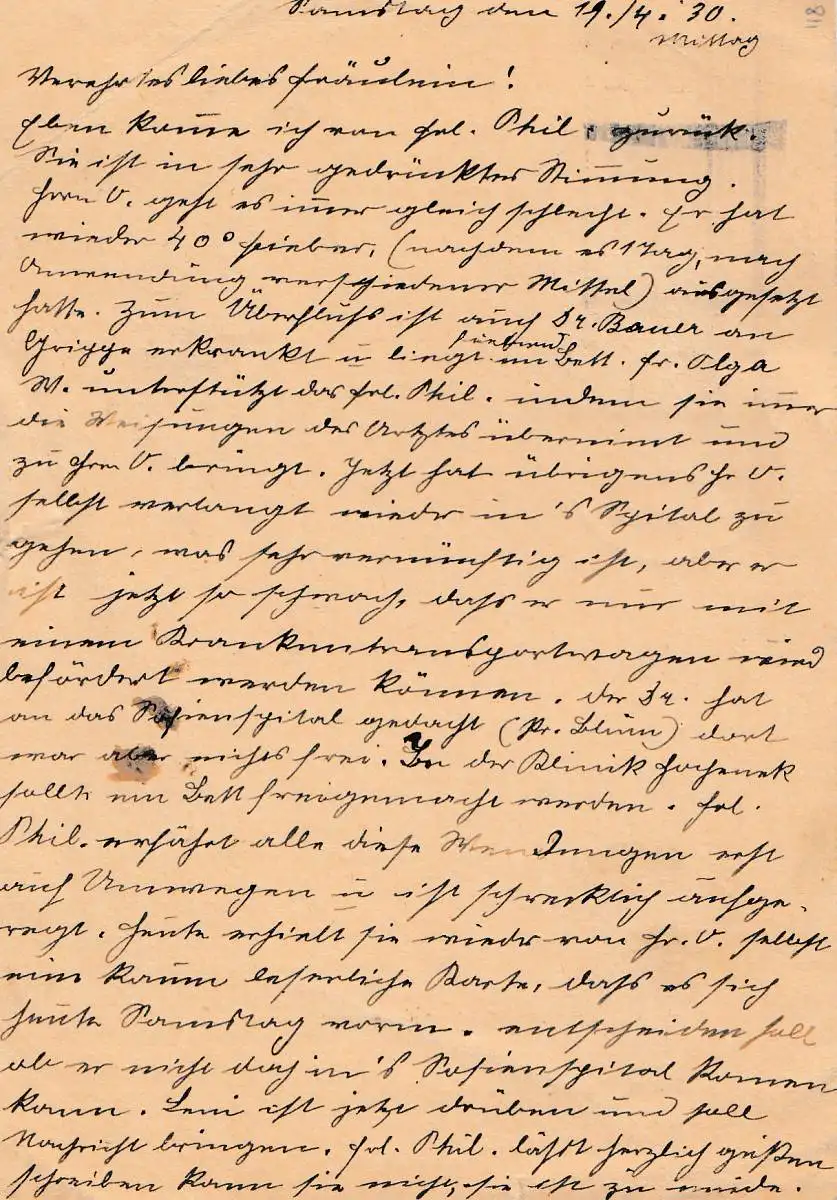 Samstag den 19./4. 30.
Mittag
118
Verehrtes liebes Fräulein!
Eben komme ich von Frl. Phil. zurück.
Sie ist in sehr gedrückter Stimmung.
Herrn O. geht es im̄er gleich schlecht. Er hat
wieder 40° Fieber, (nachdem es 1 Tag, nach
Anwendung verschiedener Mittel) ausgesetzt
hatte. Zum Überfluss ist auch Dr. Bauer an
Grippe erkrankt u liegt fiebernd im Bett. Fr. Olga
W. unterstützt das Frl. Phil. indem sie im̄er
die Weisungen des Arztes übernim̄t und
zu Hrn O. bringt. Jetzt hat übrigens Hr O.
selbst verlangt wieder in's Spital zu
gehen, was sehr vernünftig ist, aber er
ist jetzt so schwach, dass er nur mit
einem Krankentransportwagen wird
befördert werden können. Der Dr. hat
an das Sofienspital gedacht (Pr. Blum) dort
war aber nichts frei. In der Klinik Hochenek
sollte ein Bett freigemacht werden. Frl.
Phil. erfährt alle diese Wendungen erst
auf Umwegen u ist schrecklich aufge-
regt. Heute erhielt sie wieder von Hr. O. selbst
eine kaum leserliche Karte, dass es sich
heute Samstag vorm. entscheiden soll
ob er nicht doch in's Sofienspital kom̄en
kann. Leni ist jetzt drüben und soll
Nachricht bringen. Frl. Phil. lässt herzlich grüßen
schreiben kann sie nicht, sie ist zu müde.